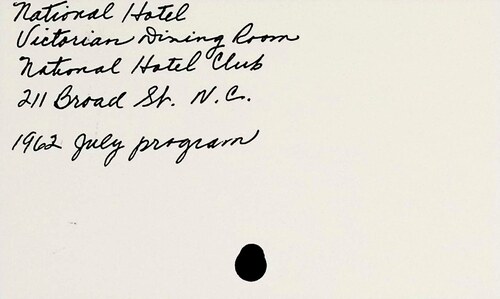 National Hotel
Victorian Dining Room
National Hotel Club
211 Broad St. N.C.
1962 July program